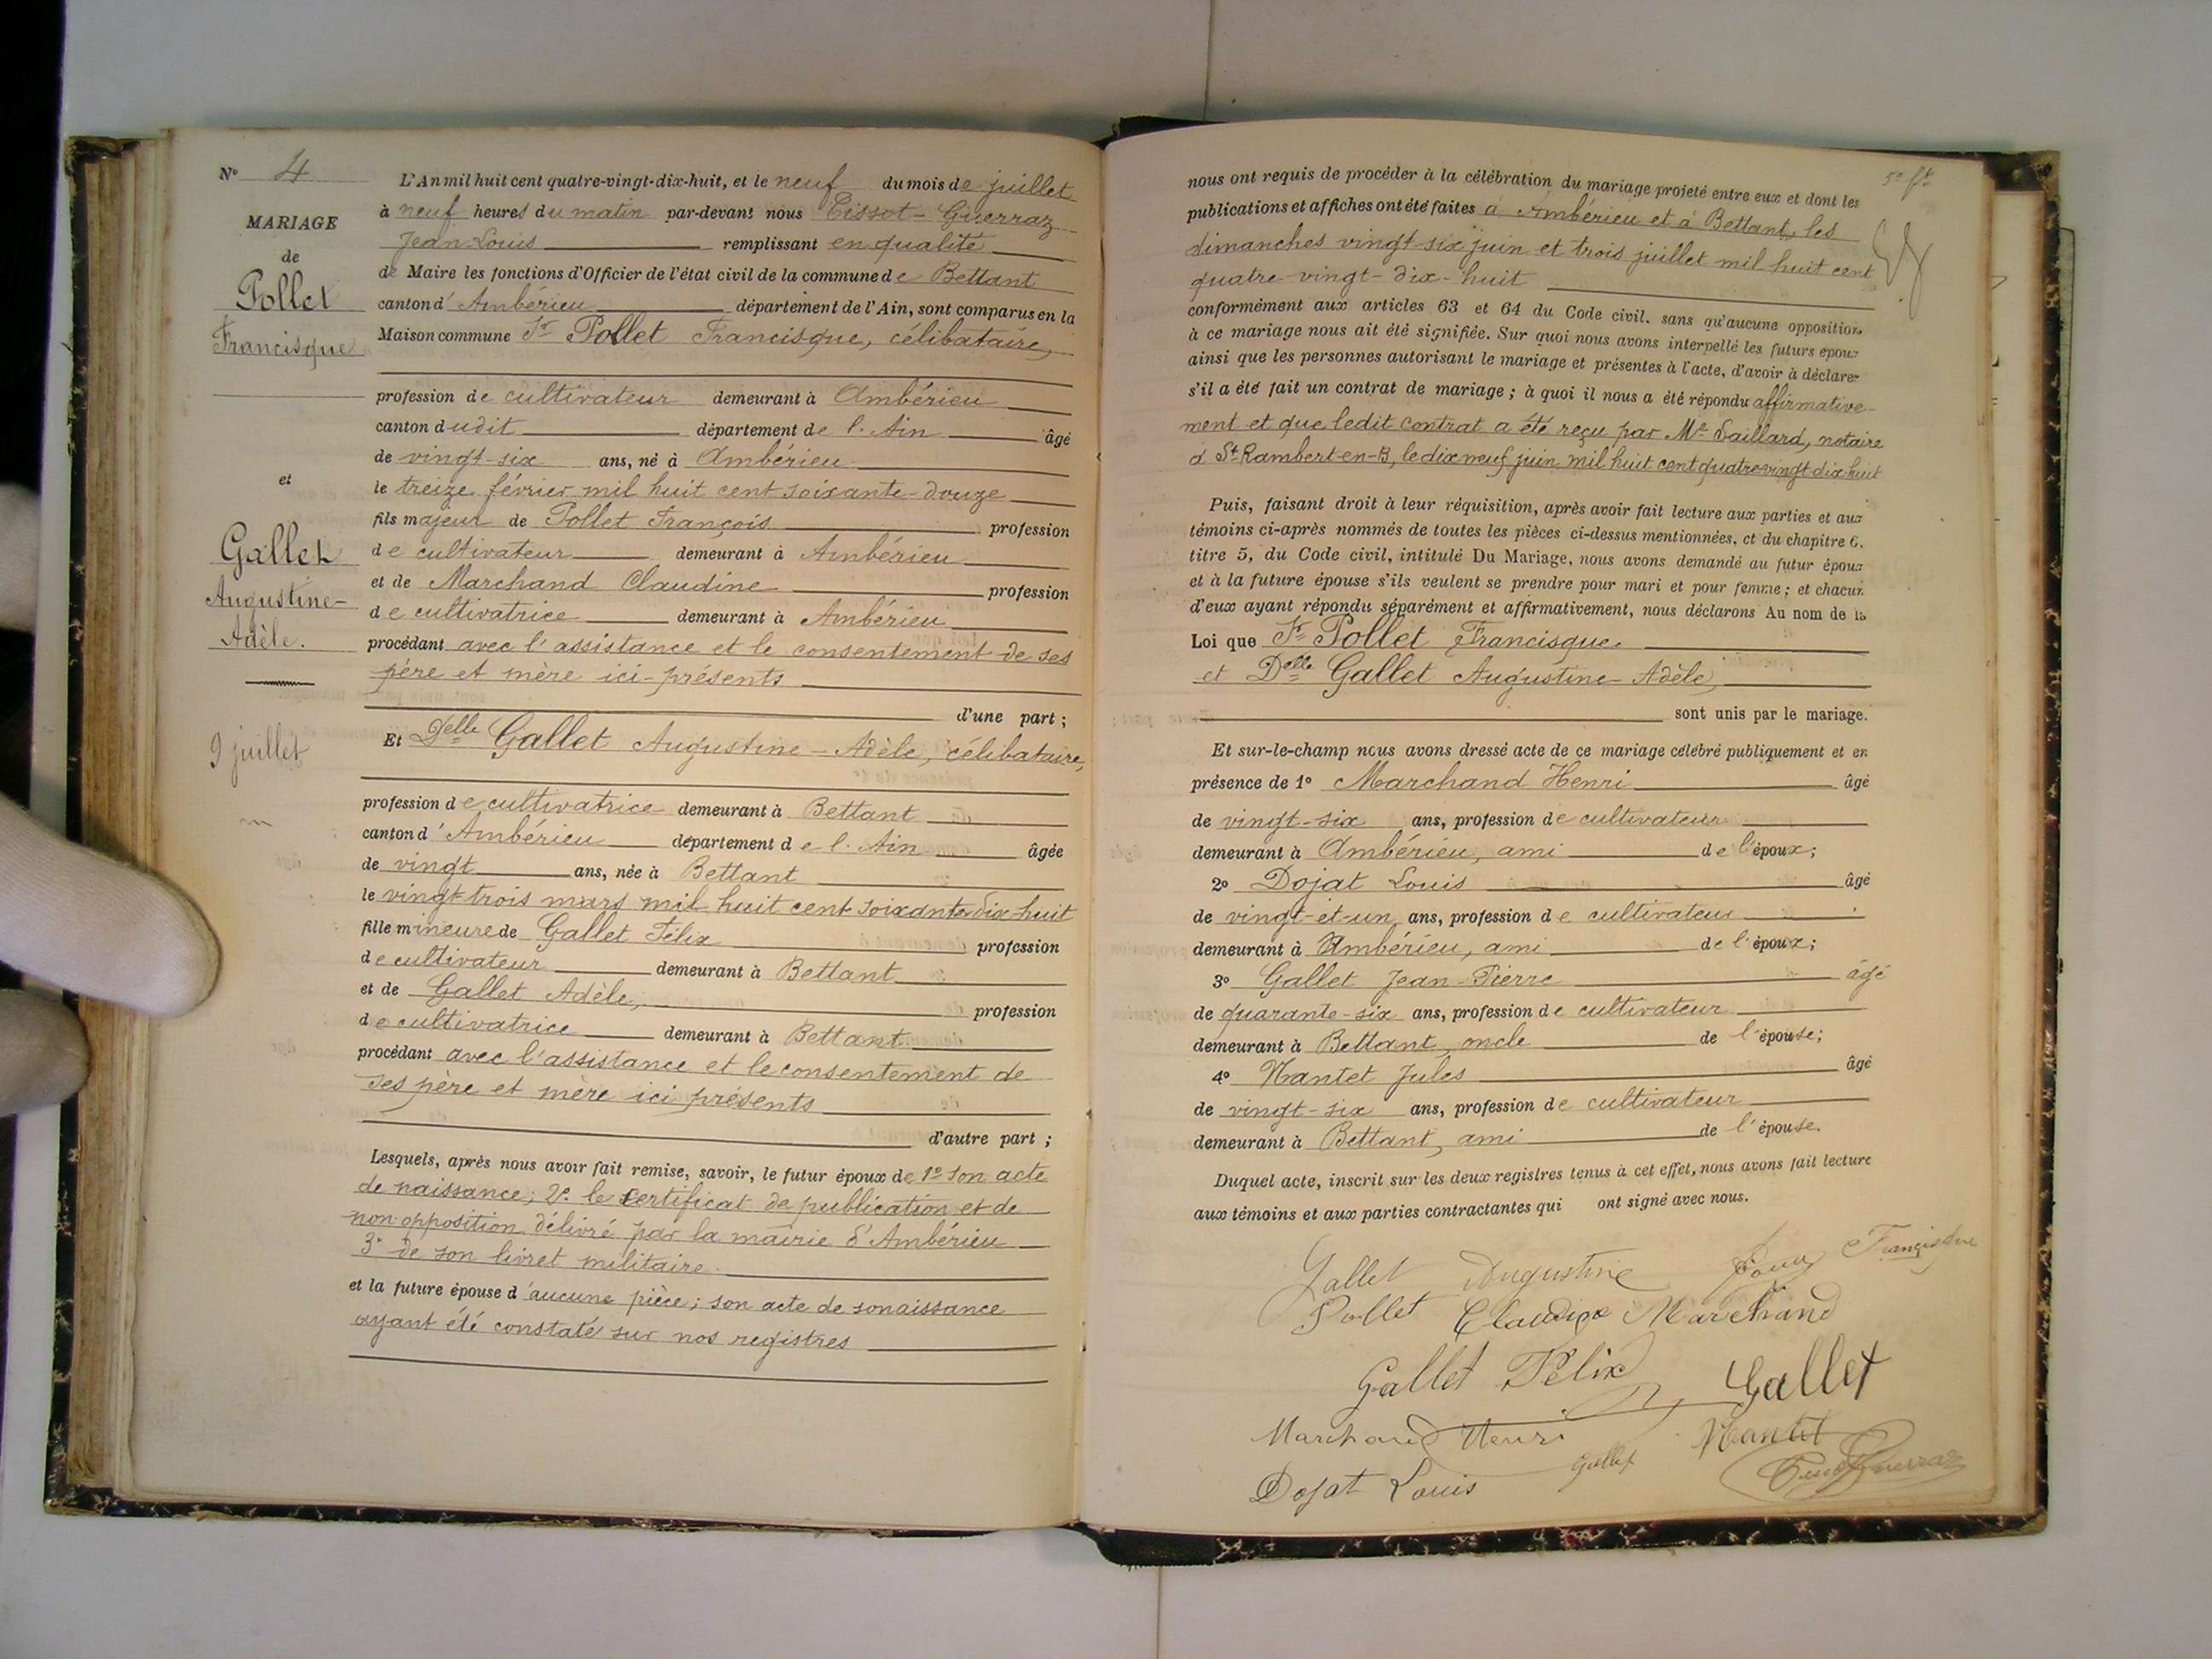 N° 4
MARIAGE
de
Pollet
Francisque
et
Gallet
Augustine-
Adèle.
9 juillet
L'An mil huit cent quatre-vingt-dix-huit, et le neuf du mois de juillet
à neuf heures du matin par-devant nous Tissot-Guerraz
Jean-Louis remplissant en qualité
de Maire les fonctions d'Officier de l'état civil de la commune de Bettant
canton d'Ambérieu département de l'Ain, sont comparus en la
Maison commune Sr Pollet Francisque, célibataire,
profession de cultivateur demeurant à Ambérieu
canton dudit département de l'Ain âgé
de vingt-six ans, né à Ambérieu
le treize février mil huit cent soixante-douze
fils majeur de Pollet François profession
de cultivateur demeurant à Ambérieu
et de Marchand Claudine profession
de cultivatrice demeurant à Ambérieu
procédant avec l'assistance et le consentement de ses
père et mère ici-présents
d'une part ;
Et Delle Gallet Augustine-Adèle, célibataire,
profession de cultivatrice demeurant à Bettant
canton d'Ambérieu département de l'Ain âgée
de vingt ans, née à Bettant
le vingt-trois mars mil huit cent soixante-dix huit
fille mineure de Gallet Félix profession
de cultivateur demeurant à Bettant
et de Gallet Adèle, profession
de cultivatrice demeurant à Bettant
procédant avec l'assistance et le consentement de
ses père et mère ici présents
d'autre part ;
Lesquels, après nous avoir fait remise, savoir, le futur époux de 1° son acte
de naissance; 2° le certificat de publication et de
non opposition délivré par la mairie d'Ambérieu
3° de son livret militaire.
et la future épouse d'aucune pièce; son acte de sonaissance
ayant été constaté sur nos registres
5e ft
nous ont requis de procéder à la célébration du mariage projeté entre eux et dont les
publications et affiches ont été faites à Ambérieu et à Bettant, les
dimanches vingt-six juin et trois juillet mil huit cent
quatre-vingt-dix-huit
conformément aux articles 63 et 64 du Code civil. sans qu'aucune opposition
à ce mariage nous ait été signifiée. Sur quoi nous avons interpellé les futurs époux
ainsi que les personnes autorisant le mariage et présentes à l'acte, d'avoir à déclarer
s'il a été fait un contrat de mariage ; à quoi il nous a été répondu affirmative-
ment et que ledit contrat a été reçu par Me Saillard, notaire
à St Rambert-en-B, le dix neuf juin mil huit cent quatre-vingt-dix-huit
Puis, faisant droit à leur réquisition, après avoir fait lecture aux parties et aux
témoins ci-après nommés de toutes les pièces ci-dessus mentionnées, et du chapitre 6.
titre 5, du Code civil, intitulé Du Mariage, nous avons demandé au futur époux
et à la future épouse s'ils veulent se prendre pour mari et pour femme ; et chacun
d'eux ayant répondu séparément et affirmativement, nous déclarons Au nom de la
Loi que Sr Pollet Francisque.
et Delle Gallet Augustine-Adèle,
sont unis par le mariage.
Et sur-le-champ nous avons dressé acte de ce mariage célébré publiquement et en
présence de 1° Marchand Henri âgé
de vingt-six ans, profession de cultivateur
demeurant à Ambérieu, ami de l'époux ;
2° Dojat Louis âgé
de vingt-et-un ans, profession de cultivateur
demeurant à Ambérieu, ami de l'époux ;
3° Gallet Jean-Pierre âgé
de quarante-six ans, profession de cultivateur
demeurant à Bettant, oncle de l'épouse ;
4° Nantet Jules âgé
de vingt-six ans, profession de cultivateur
demeurant à Bettant, ami de l'épouse.
Duquel acte, inscrit sur les deux registres tenus à cet effet, nous avons fait lecture
aux témoins et aux parties contractantes qui ont signé avec nous.
Gallet Augustine Francisque
Pollet Claudine Marchand
Gallet Félix Gallet
Marchand Henri Gallet Nantet
Dojat Louis Tissot Guerraz